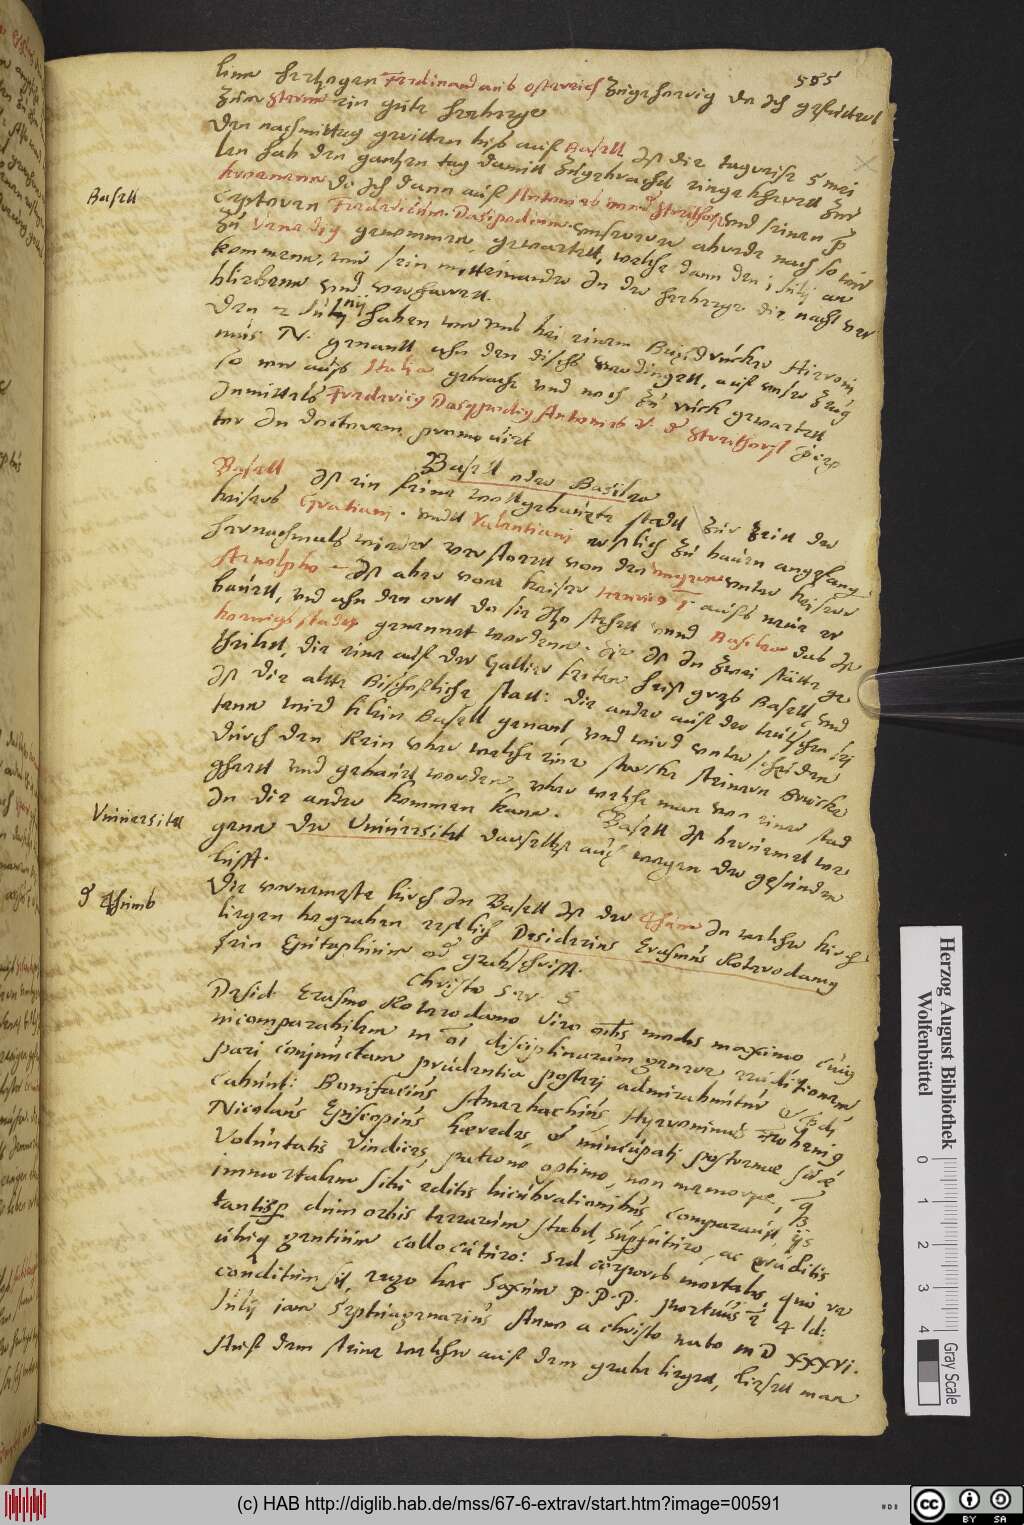 555
hern hertzogen Ferdinand aus osterreich zugehoerig da ich gefuttert
zum sternn ein gute herberge
Den nachmittag geritten biss auf Basell, ist die tagreise 5 mei
len hab den gantzen tag damitt zugebracht eingekherett zur
kronenn di ich dann auff Antonius vonn und seinen
Basell
Fredericum Dasipodium unserern abrede nach so
zu Venedig genommen, gewartett, welche dann den 1 Julij an
kommenn, und sein mitteinander in der herberge die nacht ver
bliebenn und verharrett.
Den 2 Julij haben wir uns bei einem Buchdrücker Hieroni
mus N. genantt ahn den disch verdingett, auff unser zeug
so wir aus Italia gebracht und noch zu rück gewartett
Inmittels Fredericus Dasypodius Antonius
tor In doctorem promovirt
Basell oder Basilea
Basell ist ein feine wollgebauete stadt zur zeitt der
keisers Gratiani. unnd Valentiani erstlich zu bauen angefang
hernachmals wieder verstorett von den ungern unter keiser
Arnolpho - Ist aber vom keiser Henrico 1 auffs neue er
bauett, und ahn den ortt da sie itzo stehett unnd Basilea das ist
koenigs stadt genennet worden. Sie ist in zwei stätte ge
theilett, die eine auff der Gallier seiten heist gros Basell, und
ist die alte Bischoffliche statt: die ander auff der teutschen sei
tenn wird klein Basell genant, und wird unterscheiden
durch den Rein uber welche eine starcke steinern Brücke
gehett und gebauet worden, uber welche man von einer stad
in die ander kommen kann. Basell ist beruemet we
Universitet
genn der Universitet daselbst auch wegen der gesunden
lufft.
d Thumb
Die vornembste kirch in Basell ist der Thum in welcher kirch
liegen begraben erstlich Desiderius Erasmus Roterodamus
sein Epitaphium od grabschrifft.
Christo Ser. S
Desid. Erasmo Roterodamo Viro omnibus modis maximo cuius
incomparabilem in omni disciplinarum genere eruditionem
pari coniunctam prudentia posteri admirabuntur et praedi
cabunt: Bonifacius Amerbachius, Hyeronimus Frobenius
Nicolaus Episcopius haeredes, et nuncupati postremae suae
Voluntatis Vindices, patrono optimo, non memoriae, quam
immortalem sibi editis lucubrationibus comparavit, ijs
tantisper dum orbis terrarum stabit, superfuturo, ac eruditis
ubique gentium collocuturo: Sed corporis mortalis, quo re
conditum sit, ergo hoc Saxum P.P.P. Mortuus est 4 Id:
Julij iam Septuagenarius Anno a christo nato MD XXXVI.
Auff dem steine welcher auff dem grabe lieget, liesett man
Herzog August Bibliothek
Wolfenbüttel
0 1 2 3 4
Gray Scale
(c) HAB http://diglib.hab.de/mss/67-6-extrav/start.htm?image=00591
cc BY SA